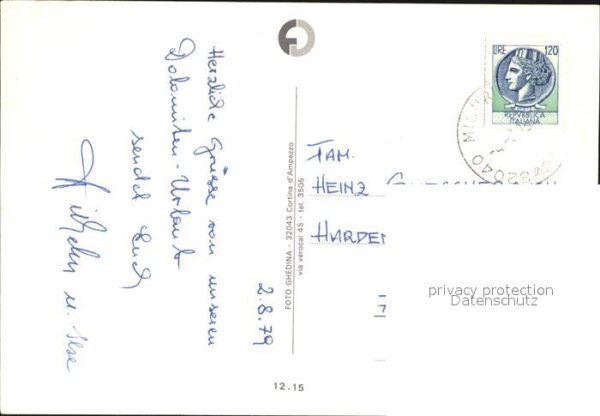 Herzliche Grüsse von unseren
Dolomiten-Urlaub
sendet Euch
Wilhelm u. Ilse
2.8.79
FOTO GHEDINA - 32043 Cortina d'Ampezzo
via verocai 45 - tel. 3505
12.15
LIRE 120
REPVBBLICA
ITALIANA
32040 MISU
FAM.
HEINZ
HARDE
privacy protection
Datenschutz